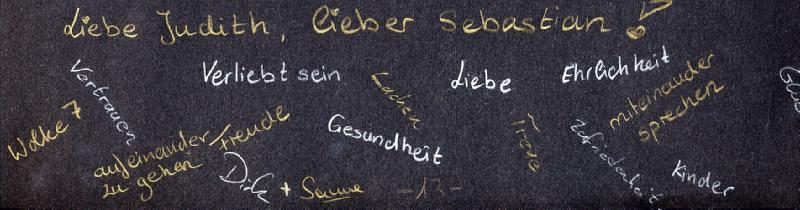 Liebe Judith, lieber Sebastian!
Vertrauen
Verliebt sein
Lachen
Liebe
Ehrlichkeit
miteinander
sprechen
Wolke 7
aufeinander
zu gehen
Freude
Gesundheit
Zufriedenheit
Kinder
Dirk + Sanne
-13-